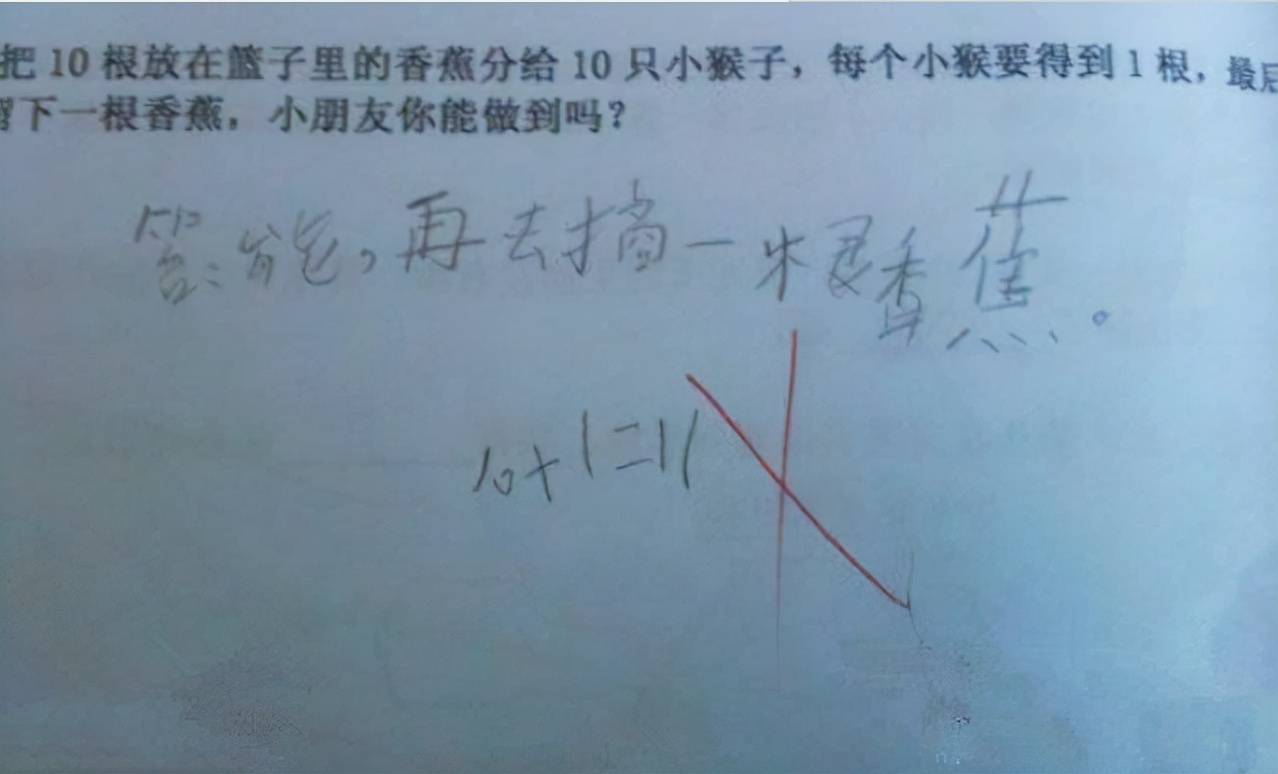 把 10 根放在篮子里的香蕉分给 10 只小猴子，每个小猴要得到 1 根，最后
留下一根香蕉。小朋友你能做到吗？
答：能，再去摘一根香蕉。
10+1=11